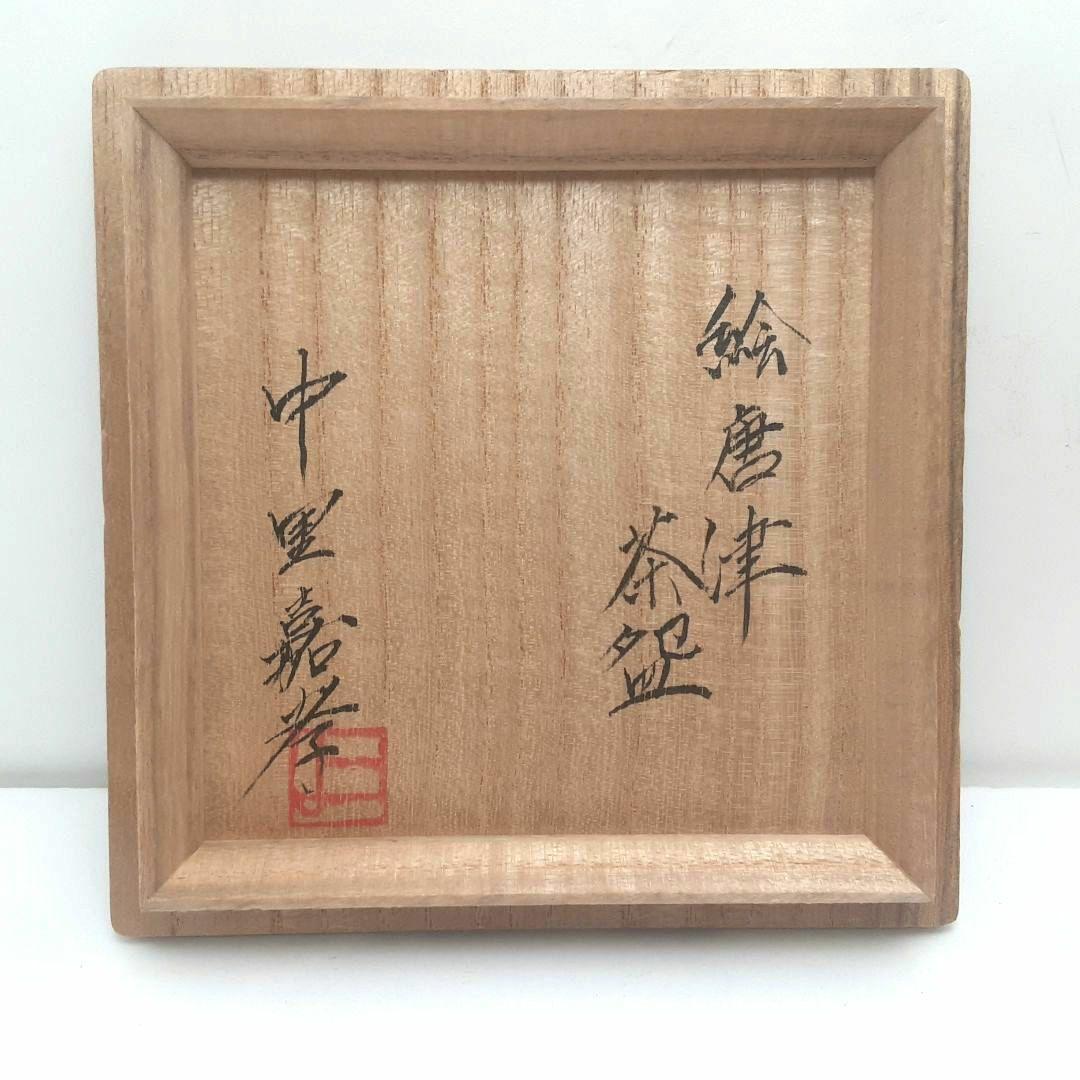 絵唐津
茶盌
中里嘉孝